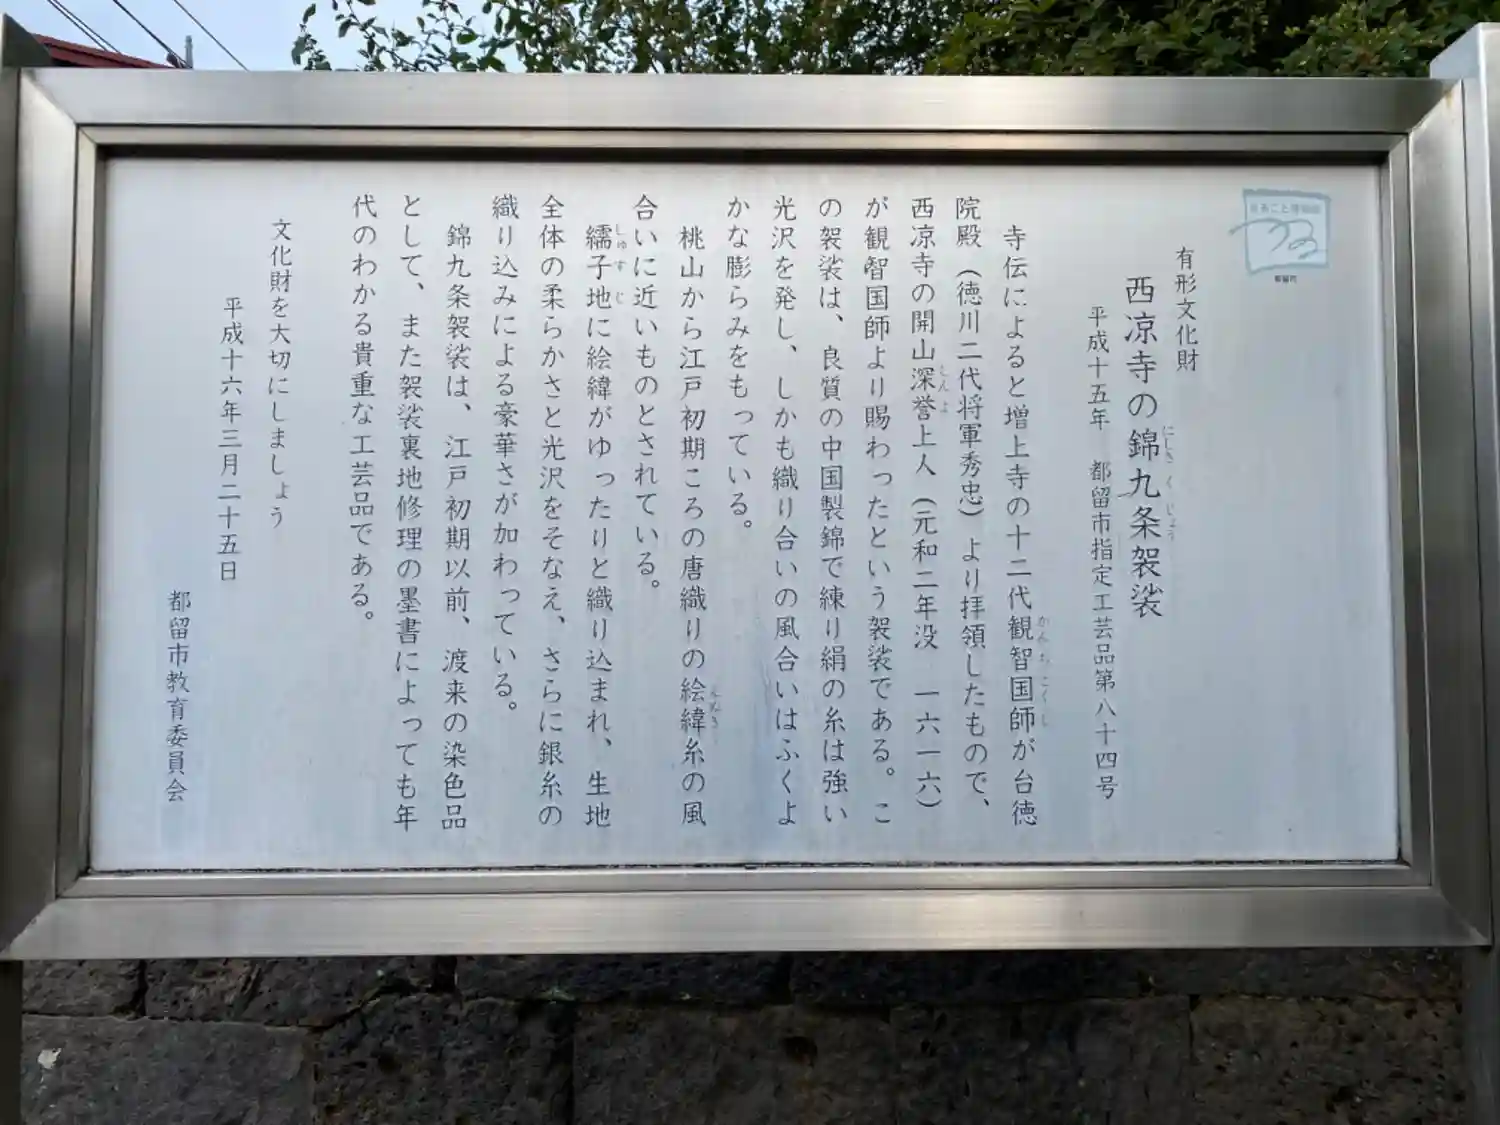 まるごと博物館
つる
都留市
有形文化財
西凉寺の錦九条袈裟
平成十五年 都留市指定工芸品第八十四号
寺伝によると増上寺の十二代観智国師が台徳
院殿（徳川二代将軍秀忠）より拝領したもので、
西凉寺の開山深誉上人（元和二年没 一六一六）
が観智国師より賜わったという袈裟である。こ
の袈裟は、良質の中国製錦で練り絹の糸は強い
光沢を発し、しかも織り合いの風合いはふくよ
かな膨らみをもっている。
桃山から江戸初期ころの唐織りの絵緯糸の風
合いに近いものとされている。
繻子地に絵緯がゆったりと織り込まれ、生地
全体の柔らかさと光沢をそなえ、さらに銀糸の
織り込みによる豪華さが加わっている。
錦九条袈裟は、江戸初期以前、渡来の染色品
として、また袈裟裏地修理の墨書によっても年
代のわかる貴重な工芸品である。
文化財を大切にしましょう
平成十六年三月二十五日
都留市教育委員会